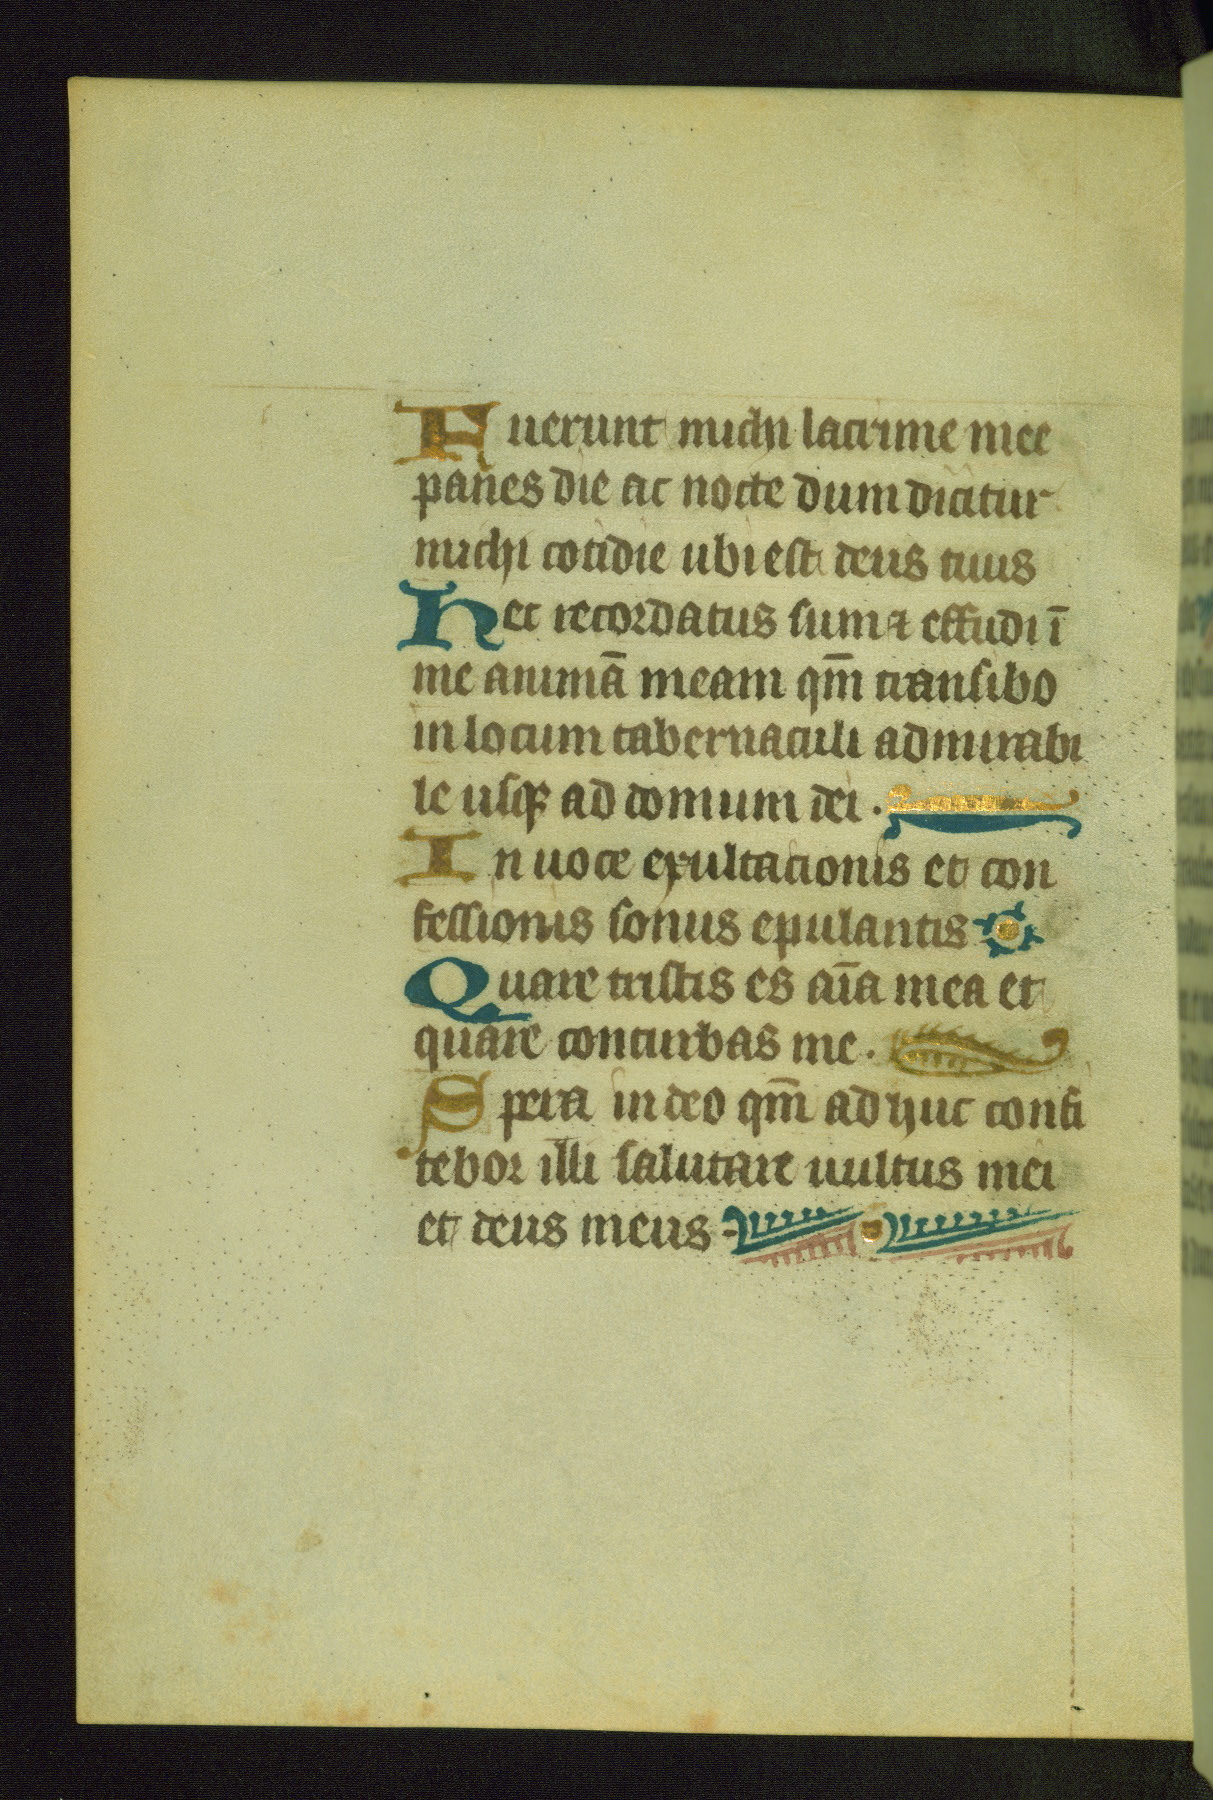 Fuerunt michi lacrime mee
panes die ac nocte dum dicitur
michi cotidie ubi est deus tuus
Hec recordatus sum ⁊ effudi ī
me animā meam qm̄ transibo
in locum tabernaculi admirabi
le usqꝫ ad domum dei .
In uoce exultacionis et con
fessionis sonus epulantis
Quare tristis es aīa mea et
quare conturbas me .
Spera in deo qm̄ adhuc confi
tebor illi salutare uultus mei
et deus meus